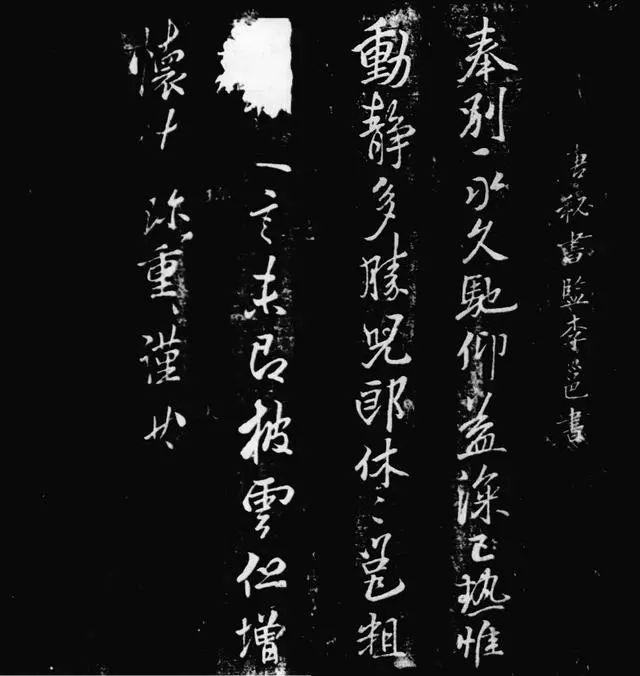 唐秘書監李邕書
奉別永久馳仰益深已熱惟
動靜多勝兒郎休々邕粗
一言未即披雲但增
懷十珎重々謹廿